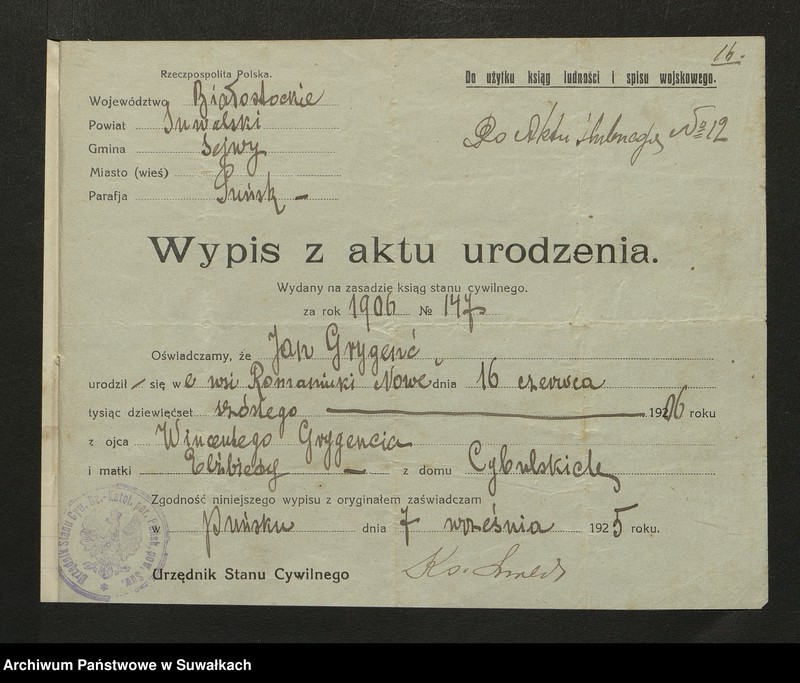 16.
Rzeczpospolita Polska.
Do użytku ksiąg ludności i spisu wojskowego.
Województwo Białostockie
Powiat Suwalski
Do Aktu ślubnego № 12
Gmina Sejwy
Miasto (wieś)
Parafja Puńsk —
Wypis z aktu urodzenia.
Wydany na zasadzie ksiąg stanu cywilnego.
za rok 1906 № 147
Oświadczamy, że Jan Grygieńć
urodził / się w e wsi Romaniuki Nowe dnia 16 czerwca
tysiąc dziewięćset szóstego — 192 06 roku
z ojca Wincentego Grygencia
i matki Elżbiety — z domu Cybulskich
Zgodność niniejszego wypisu z oryginałem zaświadczam
w Puńsku dnia 7 września 1925 roku.
Urzędnik Stanu Cywilnego Ks.
Urzędnik Stanu Cyw. Rz.-Katol. Par. Puńsk pow. Suw.
Archiwum Państwowe w Suwałkach